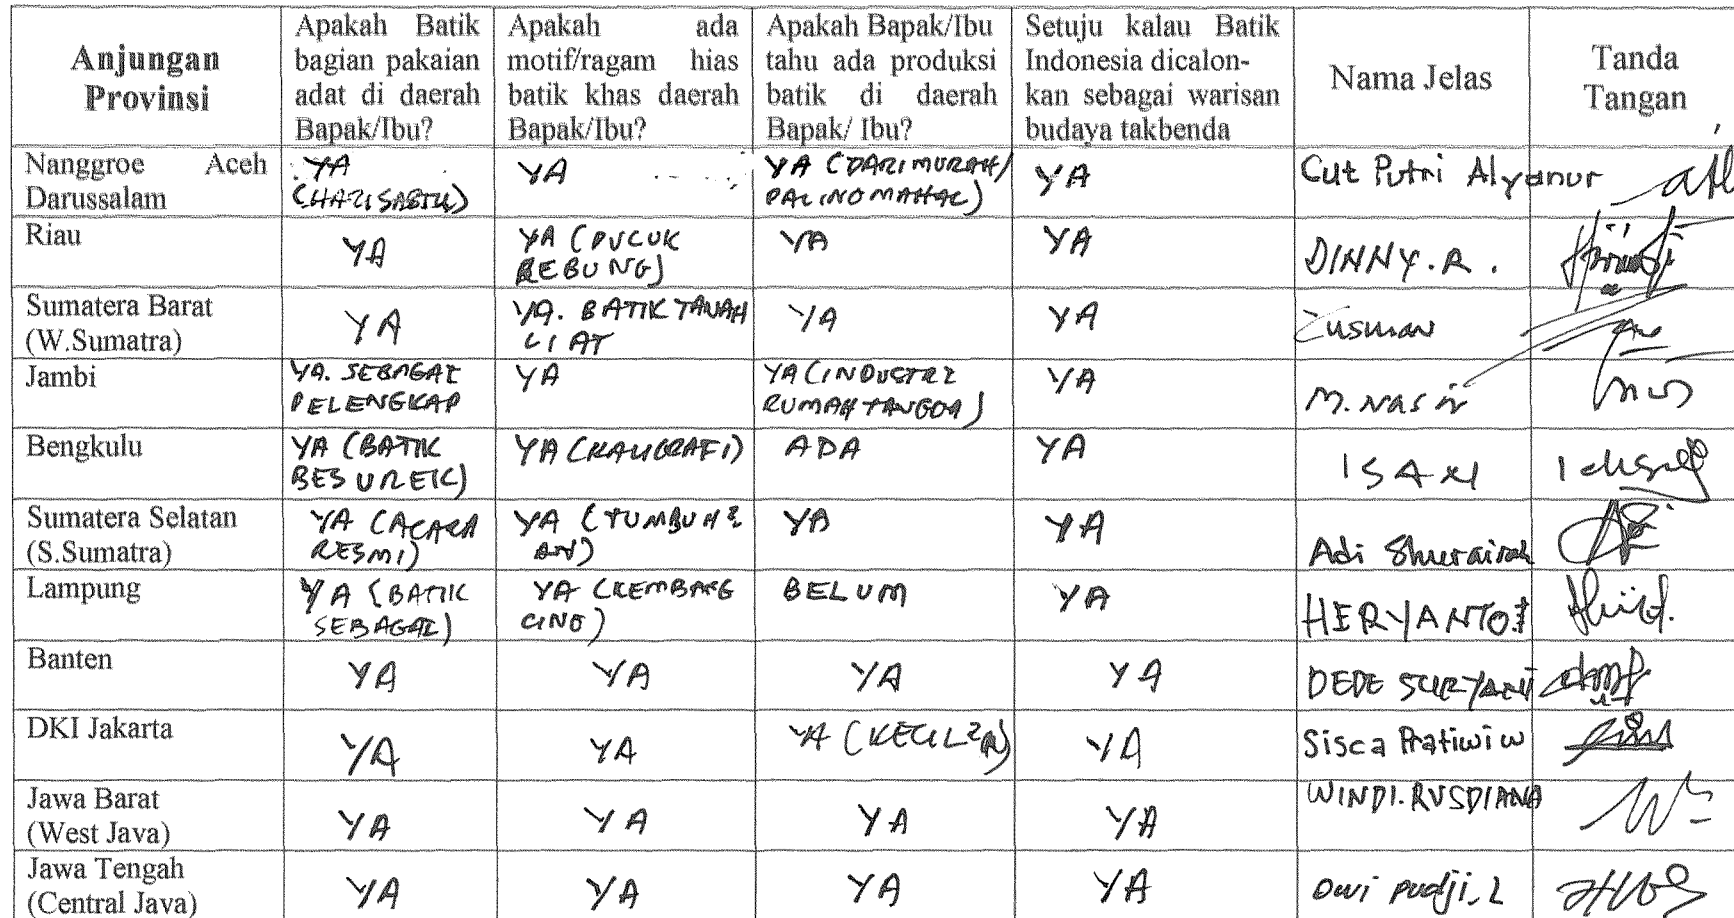 Anjungan Provinsi | Apakah Batik bagian pakaian adat di daerah Bapak/Ibu? | Apakah ada motif/ragam hias batik khas daerah Bapak/Ibu? | Apakah Bapak/Ibu tahu ada produksi batik di daerah Bapak/ Ibu? | Setuju kalau Batik Indonesia dicalon-kan sebagai warisan budaya takbenda | Nama Jelas | Tanda Tangan
Nanggroe Aceh Darussalam | YA (HARI SABTU) | YA | YA (DARI MURAH/ PALING MAHAL) | YA | Cut Putri Alyanur
Riau | YA | YA (PUCUK REBUNG) | YA | YA | DINNY. R.
Sumatera Barat (W.Sumatra) | YA | YA. BATIK TANAH LIAT | YA | YA | Zusman
Jambi | YA. SEBAGAI PELENGKAP | YA | YA (INDUSTRI RUMAH TANGGA) | YA | M. Nasir
Bengkulu | YA (BATIK BESUREK) | YA (KALIGRAFI) | ADA | YA
Sumatera Selatan (S.Sumatra) | YA (ACARA RESMI) | YA (TUMBUH2 AN) | YA | YA | Adi
Lampung | YA (BATIK SEBAGAI) | YA (KEMBANG CINO) | BELUM | YA | HERYANTO
Banten | YA | YA | YA | YA | DEDE SURYANI
DKI Jakarta | YA | YA | YA (KECIL2AN) | YA | Sisca Pratiwi W
Jawa Barat (West Java) | YA | YA | YA | YA | WINDI. RUSDIANA
Jawa Tengah (Central Java) | YA | YA | YA | YA | Dwi Pudji. L